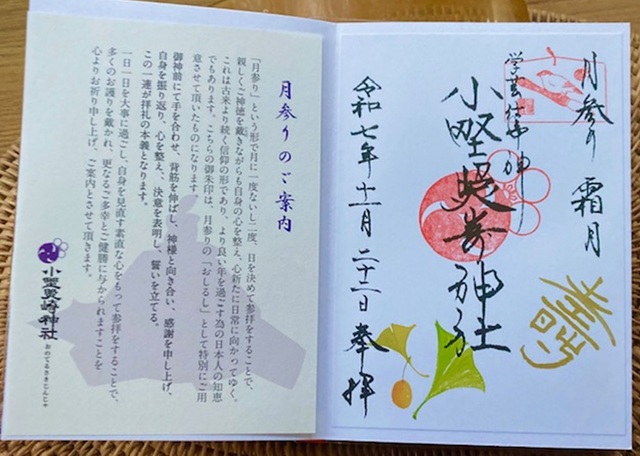 月参り 霜月
学芸仕事神
小野照崎神社
令和七年十一月二十二日奉拝
月参りのご案内
「月参り」という形で月に一度ないし二度、日を決めて参拝をすることで、
親しくご神徳を戴きながらも自身の心を整え、心新たに日常に向かってゆく。
これは古来より続く信仰の形であり、より良い年を過ごす為の日本人の知恵
でもあります。こちらの御朱印は、月参りの「おしるし」として特別にご用
意させて頂いたものになります。
御神前にて手を合わせ、背筋を伸ばし、神様と向き合い、感謝を申し上げ、
自身を振り返り、心を整え、決意を表明し、誓いを立てる。
この一連が拝礼の本義となります。
一日一日を大事に過ごし、自身を見直す素直な心をもって参拝をすることで、
多くのお護りを戴かれ、更なるご多幸とご健勝に与かられますことを
心よりお祈り申し上げ、ご案内とさせて頂きます。
小野照崎神社
おのてるさきじんじゃ